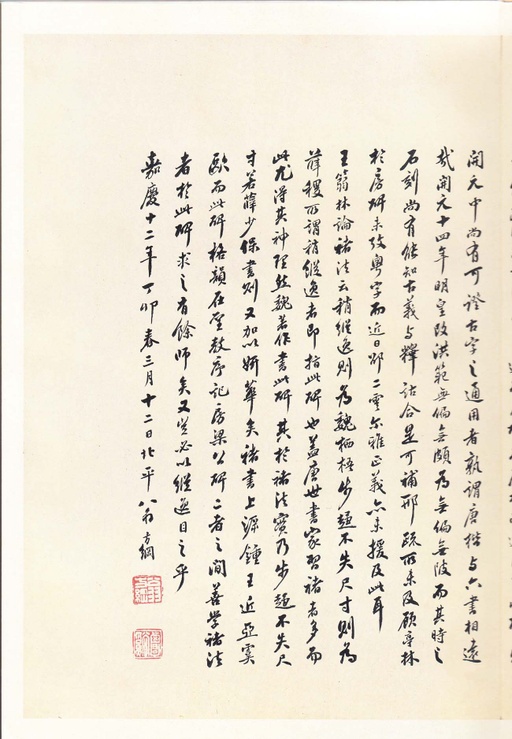 開元中尚有可證古字之通用者孰謂唐楷与六書相遠
哉開元十四年明皇改洪範無偏無頗為無偏無陂而其時之
石刻尚有能知古義与釋詁合是可補邢疏所未及顧亭林
於房碑未攷粤字而近日邵二雲尒雅正義亦未援及此耳
王蒻林論褚法云稍縱逸則為魏栖梧步趨不失尺寸則為
薛稷所謂稍縱逸者即指此碑也蓋唐世書家習褚者多而
此尤得其神理然魏著作書此碑其於褚法實乃步趨不失尺
寸若薛少保書則又加以妍華矣褚書上源鍾王近亞虞
歐而此碑格韻在聖教序記房梁公碑二者之間善學褚法
者於此碑求之有餘師矣又豈必以縱逸目之乎
嘉慶十二年丁卯春三月十二日北平翁方綱